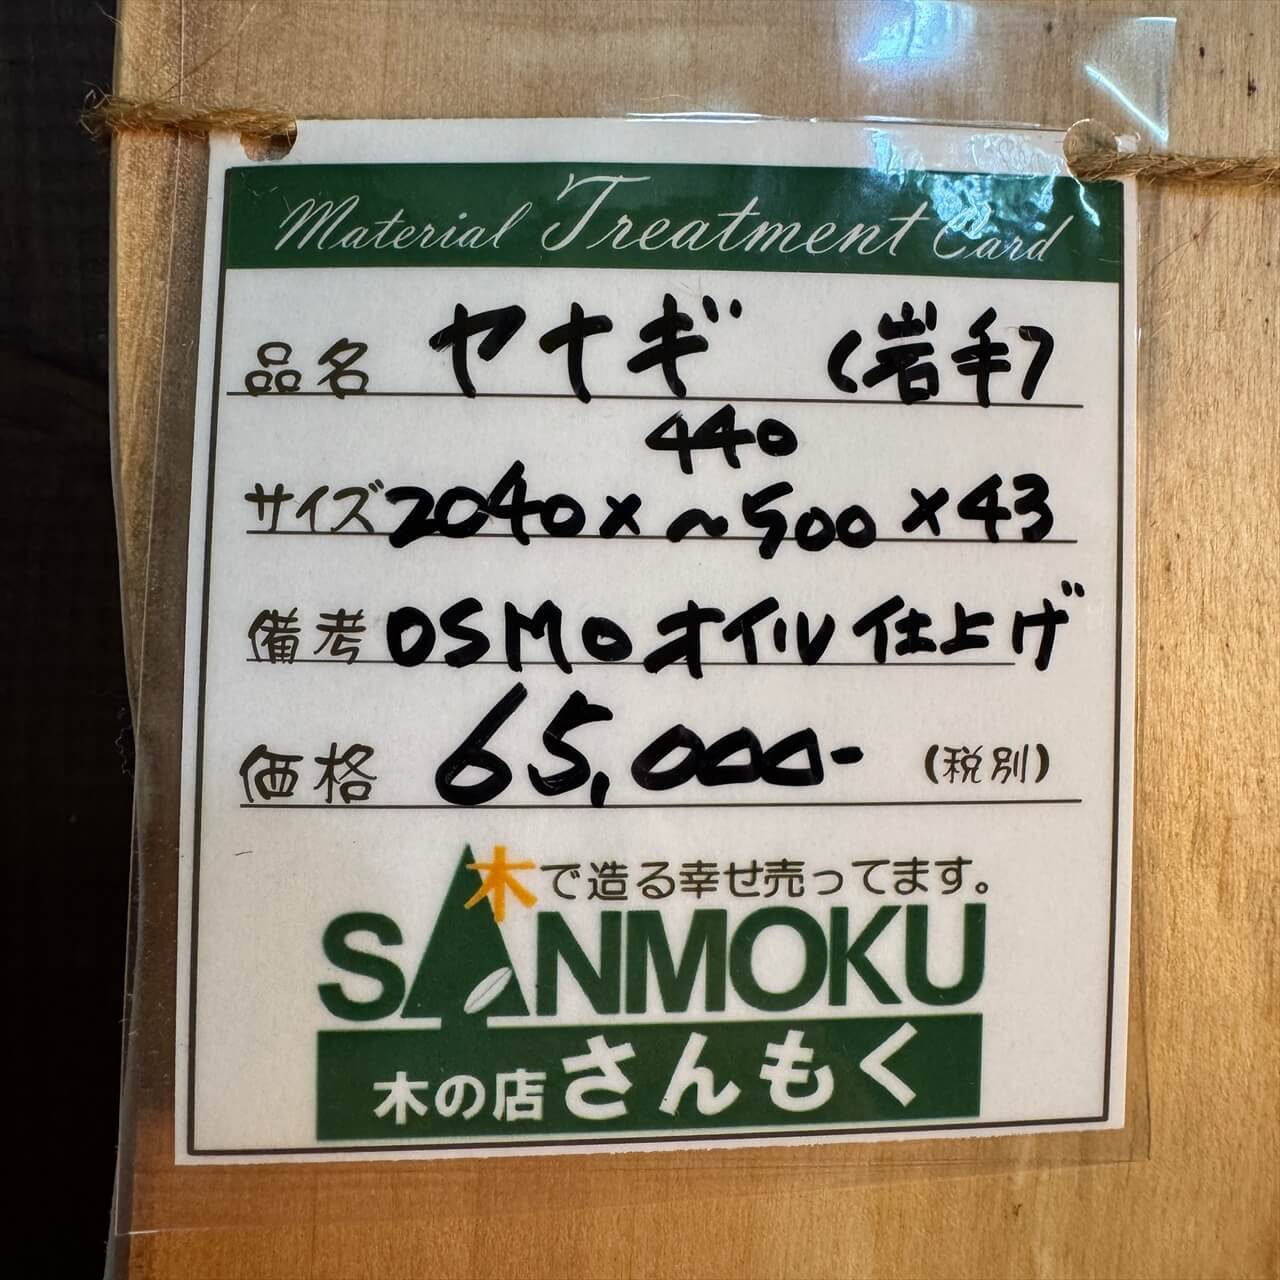 Material Treatment Card
品名 ヤナギ (岩手)
440
サイズ 2040×～500×43
備考 OSMOオイル仕上げ
価格 65,000- (税別)
木で造る幸せ売ってます。
SANMOKU
木の店 さんもく